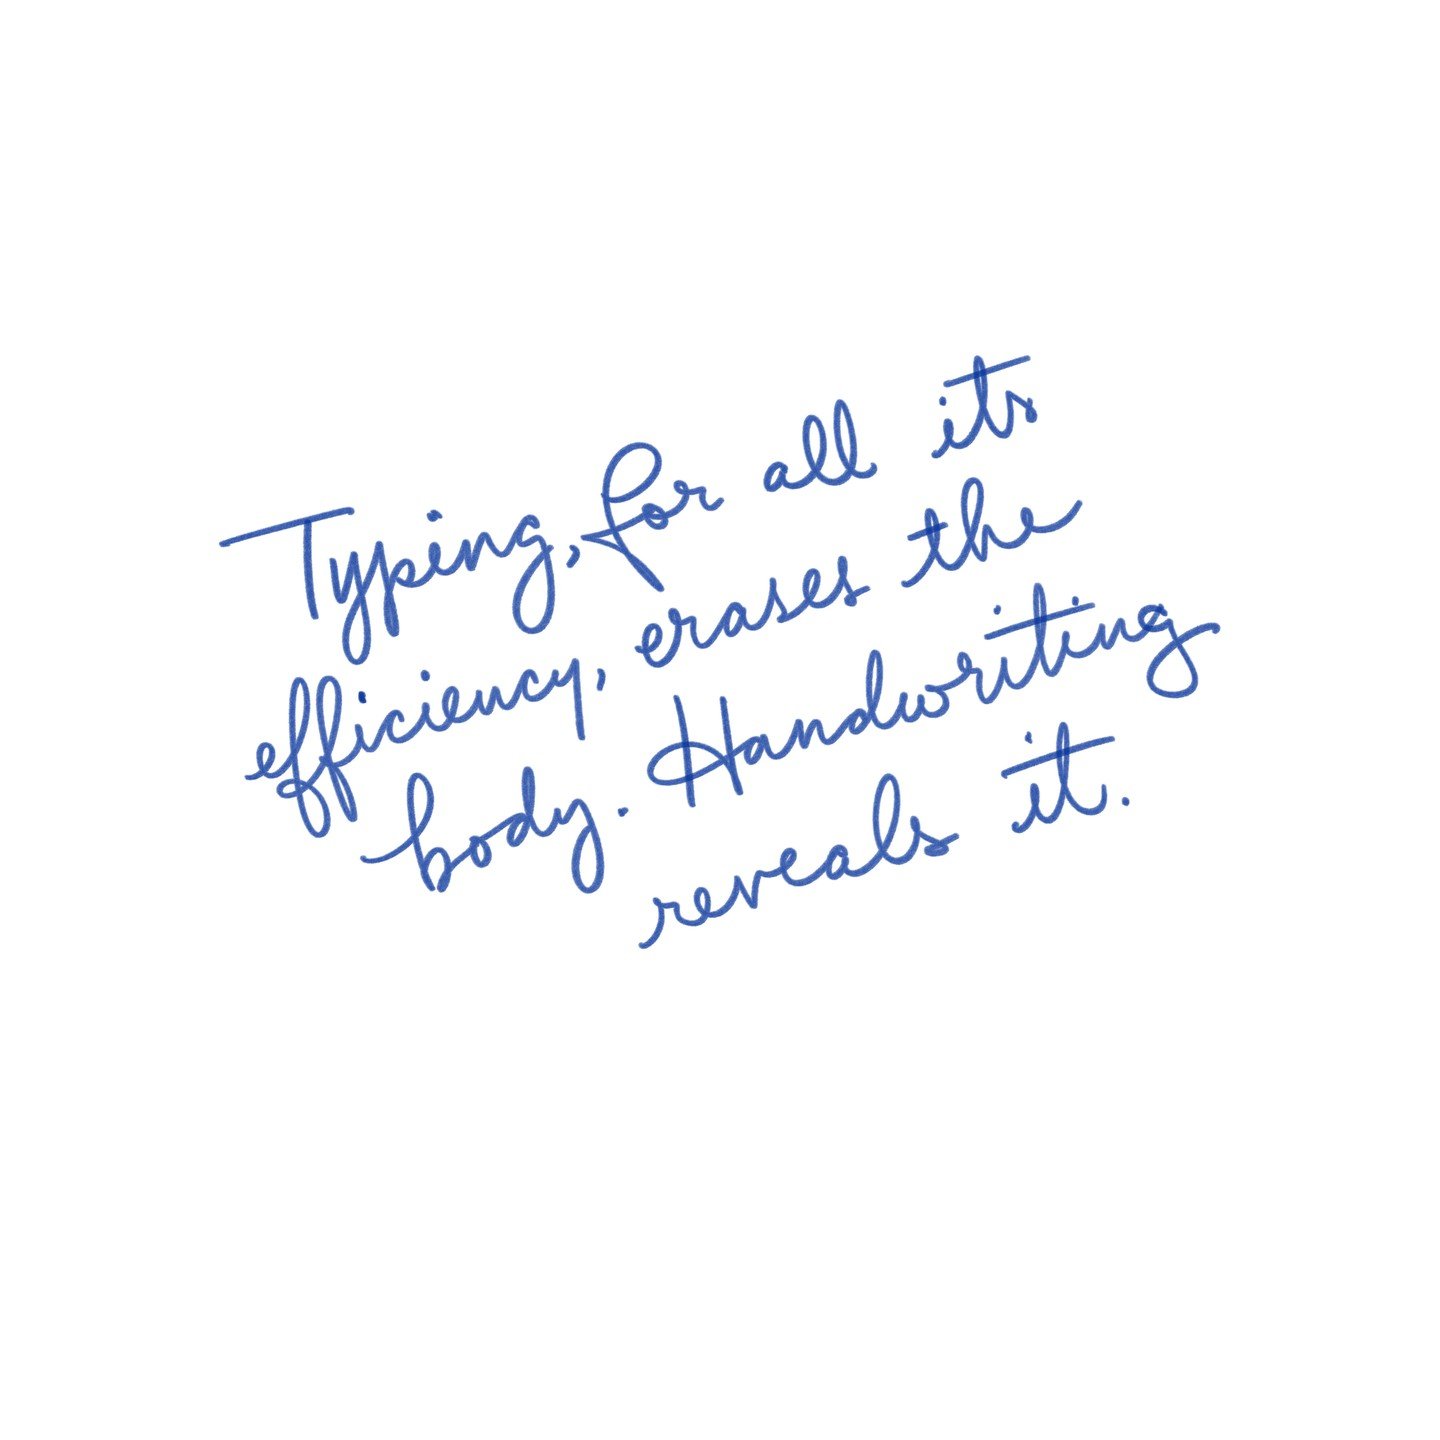 Typing, for all its
efficiency, erases the
body. Handwriting
reveals it.